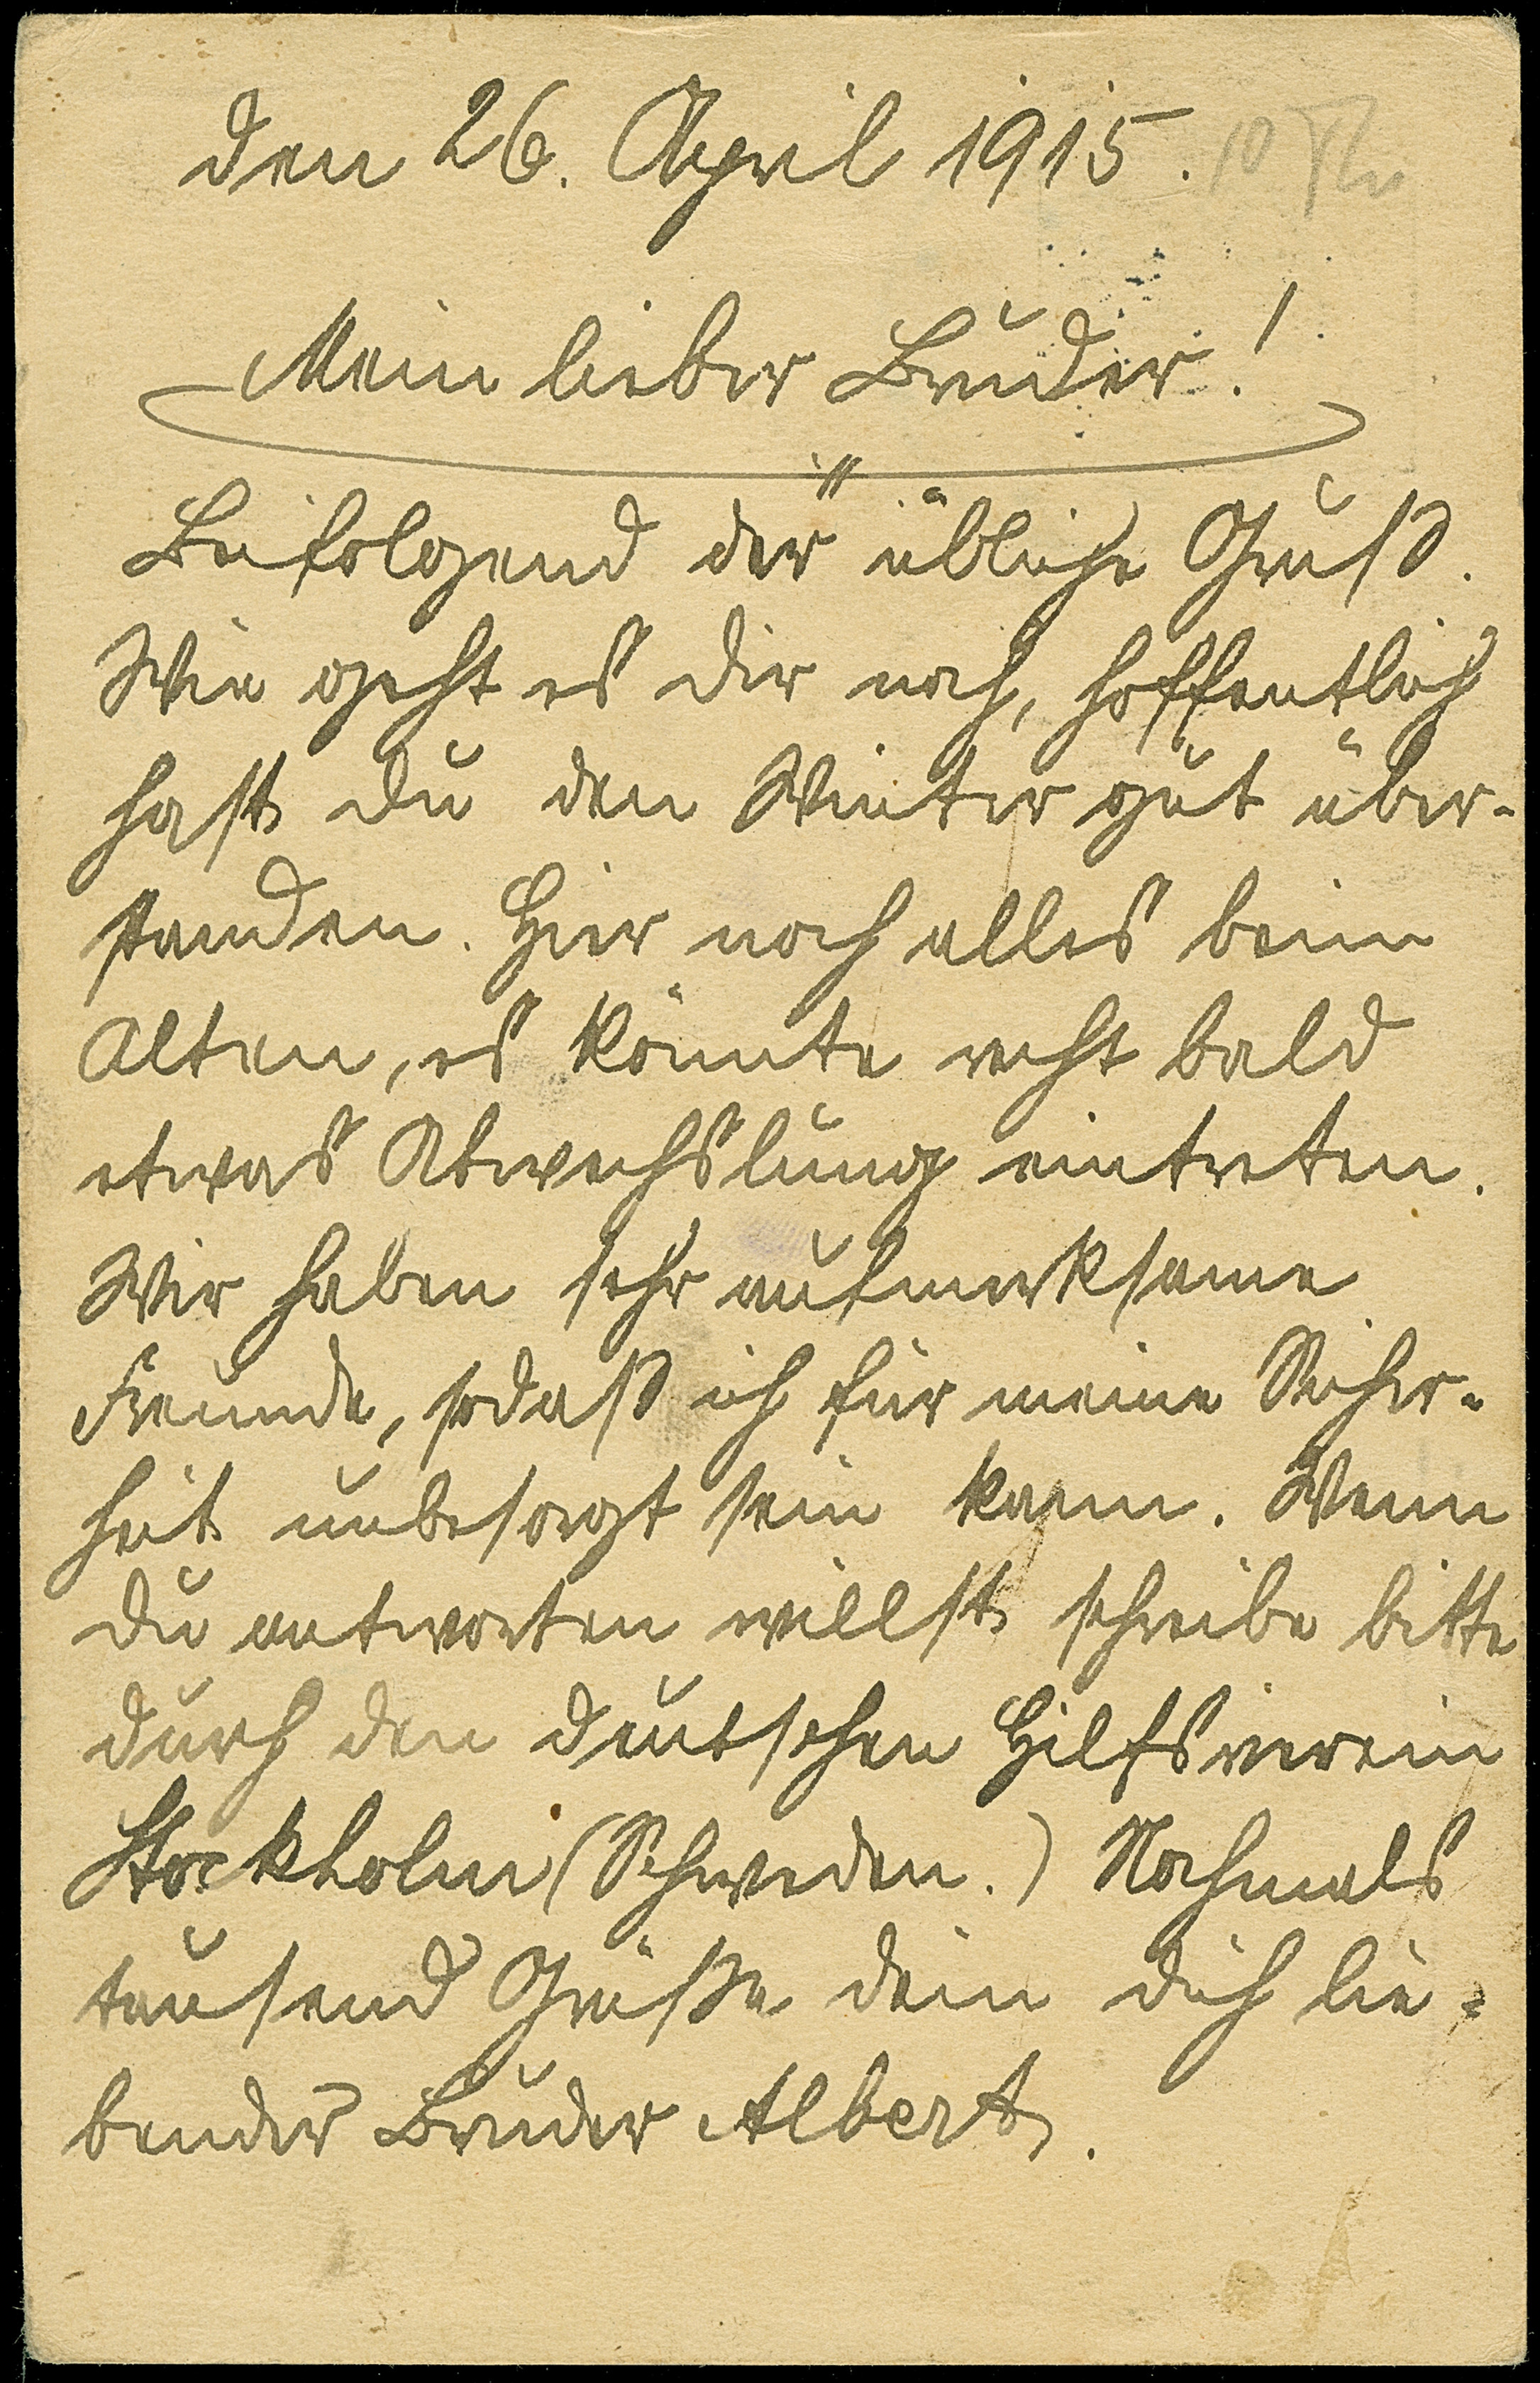 den 26. April 1915.
Mein lieber Bruder!
Beifolgend der übliche Gruß.
Wie geht es dir noch, hoffentlich
hast du den Winter gut über-
standen. Hier noch alles beim
Alten, es könnte recht bald
etwas Abwechslung eintreten.
Wir haben sehr aufmerksame
Freunde, sodaß ich für meine Sicher-
heit unbesorgt sein kann. Wenn
du antworten willst schreibe bitte
durch den deutschen Hilfsverein
Stockholm (Schweden.) Nochmals
tausend Grüße dein dich lie-
bender Bruder Albert.